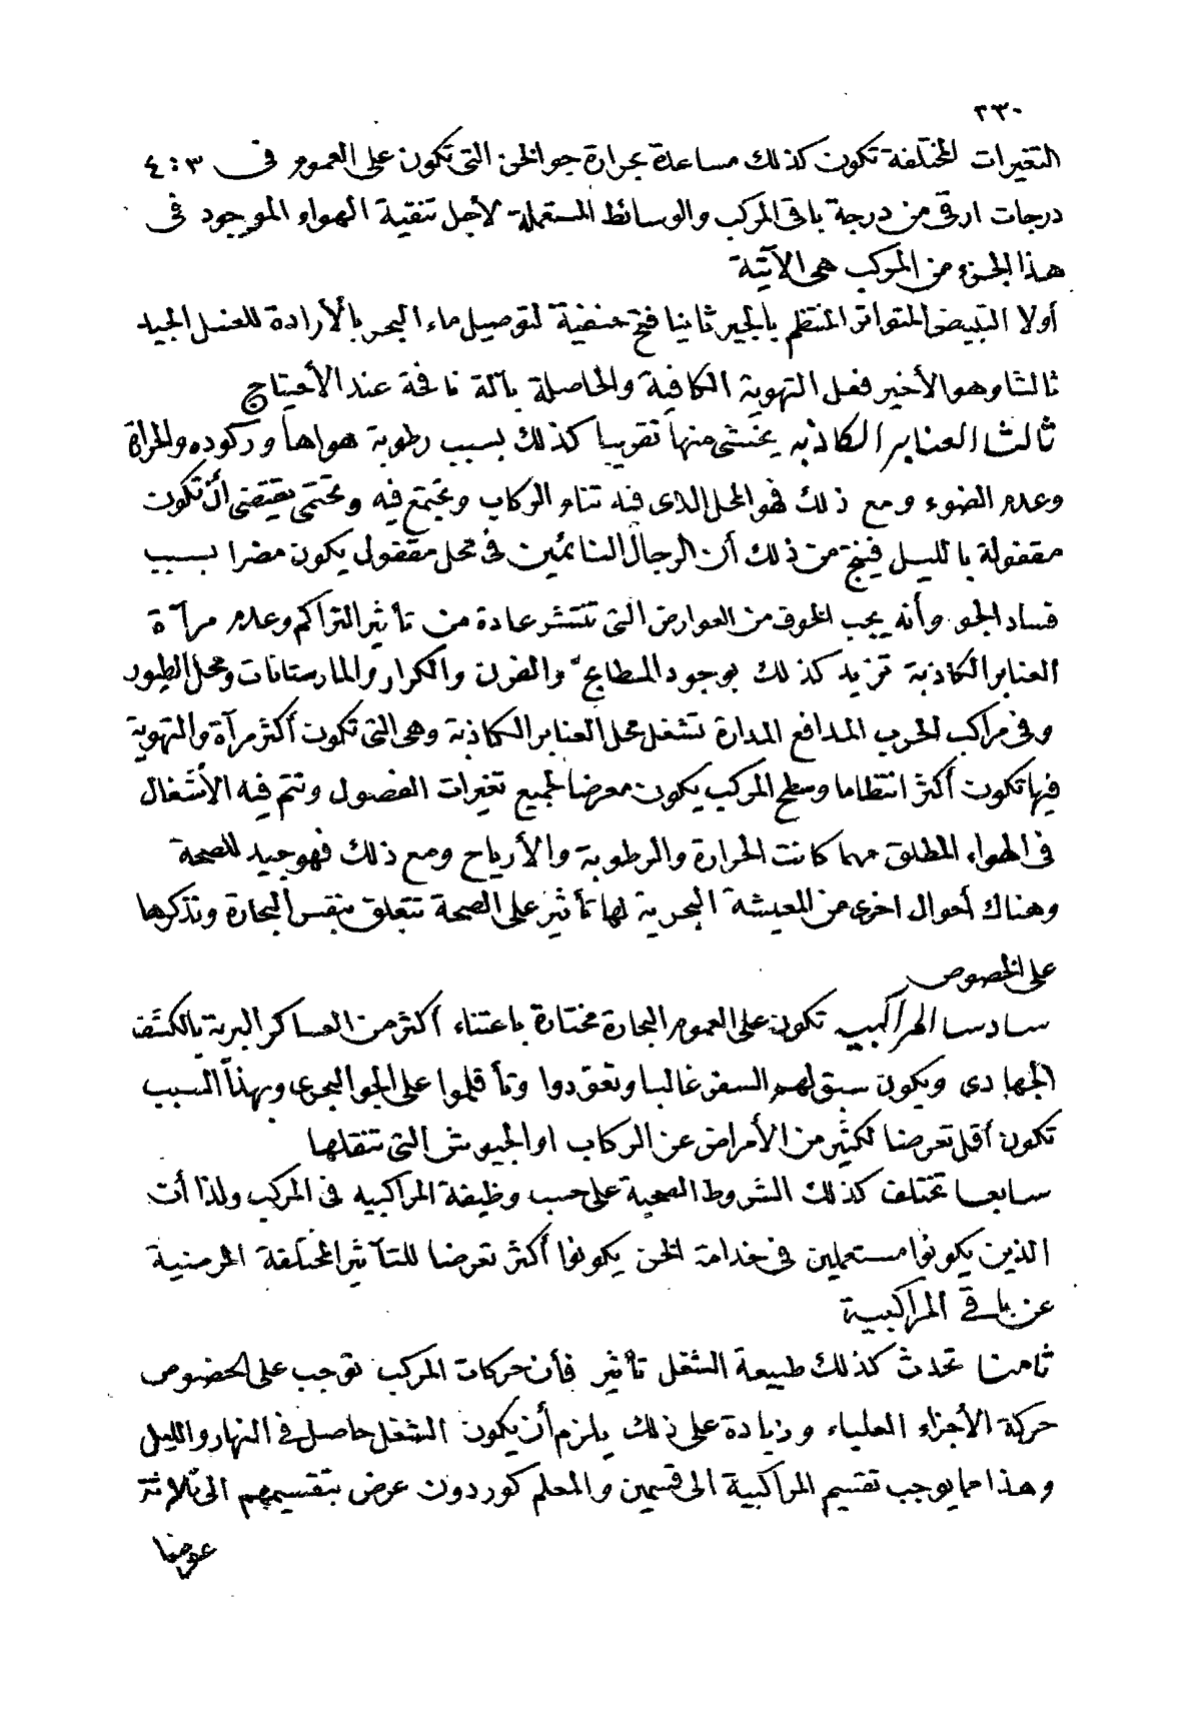 ٢٣٠
التغيرات المختلفة تكون كذلك مساعدة بحرارة جو الخن التى تكون على العموم فى ٣ : ٤
درجات ارقى من درجة باقى المركب والوسائط المستعملة لأجل تنقية الهواء الموجود فى
هذا الجزء من المركب هى الآتية
أولا التبييض المتواتر المنتظم بالجير ثانيا فتح حنفية لتوصيل ماء البحر بالأرادة للغسل الجيد
ثالثا وهو الأخير فعل التهوية الكافية والحاصلة بآلة نافخة عند الأحتياج
ثالث العنابر الكاذبه يختشى منها تقريبا كذلك بسبب رطوبة هواها وركوده والحرارة
وعدم الضوء ومع ذلك فهو المحل الذى فيه تنام الركاب وتجتمع فيه وتحتمى يقتضى أن تكون
مقفولة بالليل فينتج من ذلك أن الرجال النائمين فى محل مقفول يكون مضرا بسبب
فساد الجو وأنه يجب الخوف من العوارض التى تنتشر عادة من تأثير التراكم وعدم مرآة
العنابر الكاذبة تزيد كذلك بوجود المطابخ والفرن والكرار والمارستانات ومحل الطيور
وفى مراكب الحرب المدافع المدارة تشغل محل العنابر الكاذبة وهى التى تكون أكثر مرآة والتهوية
فيها تكون أكثر انتظاما وسطح المركب يكون معرضا لجميع تغيرات الفصول وتتم فيه الأشغال
فى الهواء المطلق مهما كانت الحرارة والرطوبة والأرياح ومع ذلك فهو جيد للصحة
وهناك أحوال اخرى من المعيشة البحرية لها تأثير على الصحة تتعلق بنفس البحارة ونذكرها
على الخصوص
سادسا المراكبيه تكون على العموم البحارة مختارة باعتناء أكثر من العساكر البرية بالكشف
الجهادى ويكون سبق لهم السفر غالبا وتعودوا وتأقلموا على الجو البحرى وبهذا السبب
تكون أقل تعرضا لكثير من الأمراض عن الركاب او الجيوش التى تنقلها
سابعا تختلف كذلك الشروط الصحية على حسب وظيفة المراكبيه فى المركب ولذا أن
الذين يكونوا مستعملين فى خدامة الخن يكونوا أكثر تعرضا للتآثير المختلفة المرضية
عن باقى المراكبية
ثامنا تحدث كذلك طبيعة الشغل تأثير فأن حركات المركب توجب على الخصوص
حركة الأجزاء العلياء وزيادة على ذلك يلزم أن يكون الشغل حاصل فى النهار والليل
وهذا مما يوجب تقسيم المراكبية الى قسمين والمعلم كوردون عرض بتقسيمهم الى ثلاثة
عوضا